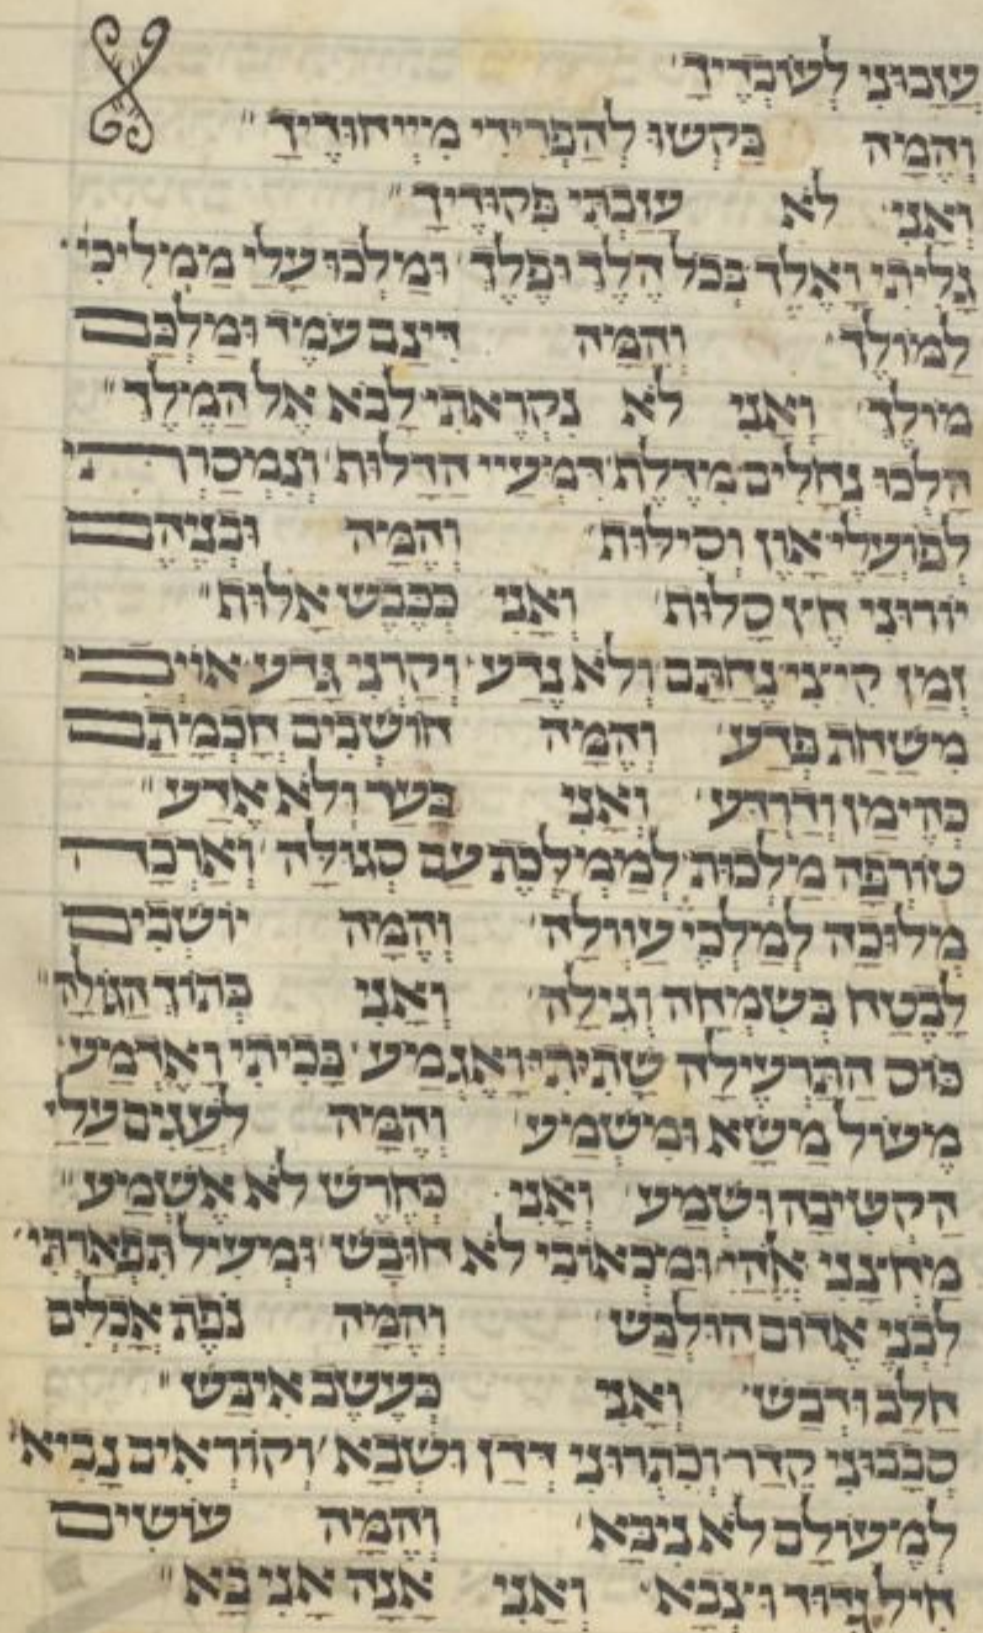 עֲזָבוּנִי לְעוֹבְדֶיךָ
וְהֵמָּה בִּקְשׁוּ לְהַפְרִידִי מִיִּיחוּדֶיךָ
וַאֲנִי לֹא עָזַבְתִּי פִּקּוּדֶיךָ
גָּלִיתִי וָאֵלֵךְ בְּכָל הֵלֶךְ וּפֶלֶךְ וּמָלְכוּ עָלַי מַמְלִיכִי
לַמּוֹלֶךְ וְהֵמָּה דִּינָם עֹמֶד וּמַלְכָּם
מוֹלֵךְ וַאֲנִי לֹא נִקְרֵאתִי לָבֹא אֶל הַמֶּלֶךְ
הָלְכוּ נְחָלִים מִדֶּלֶת דִּמְעַיי הַדָּלוּת וְנִמְסַרְתִּי
לְפוֹעֲלֵי אָוֶן וְסִילוּת וְהֵמָּה וּבְנֵיהֶם
יוֹרוּנִי חֵיץ סָלוּת וַאֲנִי כְּכֶבֶשׂ אָלוּת
זְמַן קִיצִּי נֶחְתַּם וְלֹא נֶדַע וְקַרְנִי גָּדַע אוֹיְבִי
מִשַּׁחַת פְּדַע וְהֵמָּה חוֹשְׁבִים חָכְמָתָם
כְּהֵימָן וְדַרְדַּע וַאֲנִי בַּעַר וְלֹא אֵדַע
טוֹרְפָה מַלְכוּת לְמַמְלֶכֶת עַם סְגוּלָּה וְאָרְכָה
מְלוּכָה לְמַלְכֵי עַוְולָה וְהֵמָּה יוֹשְׁבִים
לָבֶטַח בְּשִׂמְחָה וְגִילָה וַאֲנִי בְּתוֹךְ הַגּוֹלָה
כּוֹס הַתַּרְעֵלָה שָׁתִיתִי וָאֶגְמַע בָּכִיתִי וָאֶדְמַע
מֵעוֹל מַשָּׂא וּמִשְׁמַע וְהֵמָּה לֹעֲגִים עָלַי
הַקְשִׁיבָה וּשְׁמַע וַאֲנִי כְּחֵרֵשׁ לֹא אֶשְׁמַע
מִחִצָּנִי אֱהִי וּמַכְאוֹבִי לֹא חוּבָּשׁ וּמְעִיל תִּפְאַרְתִּי
לִבְנֵי אֱדוֹם הוּלְבַּשׁ וְהֵמָּה נֹפֶת אֹכְלִים
חָלָב וּדְבַשׁ וַאֲנִי כָּעֵשֶׂב אִיבַשׁ
סְבָבוּנִי קֵדָר וְכִתְּרוּנִי דְּדָן וּשְׁבָא וְקוֹרְאִים נָבִיא
לְמֵעוֹלָם לֹא נִיבָּא וְהֵמָּה עוֹשִׂים
חַיִל גְּדוּד וְצָבָא וַאֲנִי אָנָה אֲנִי בָא